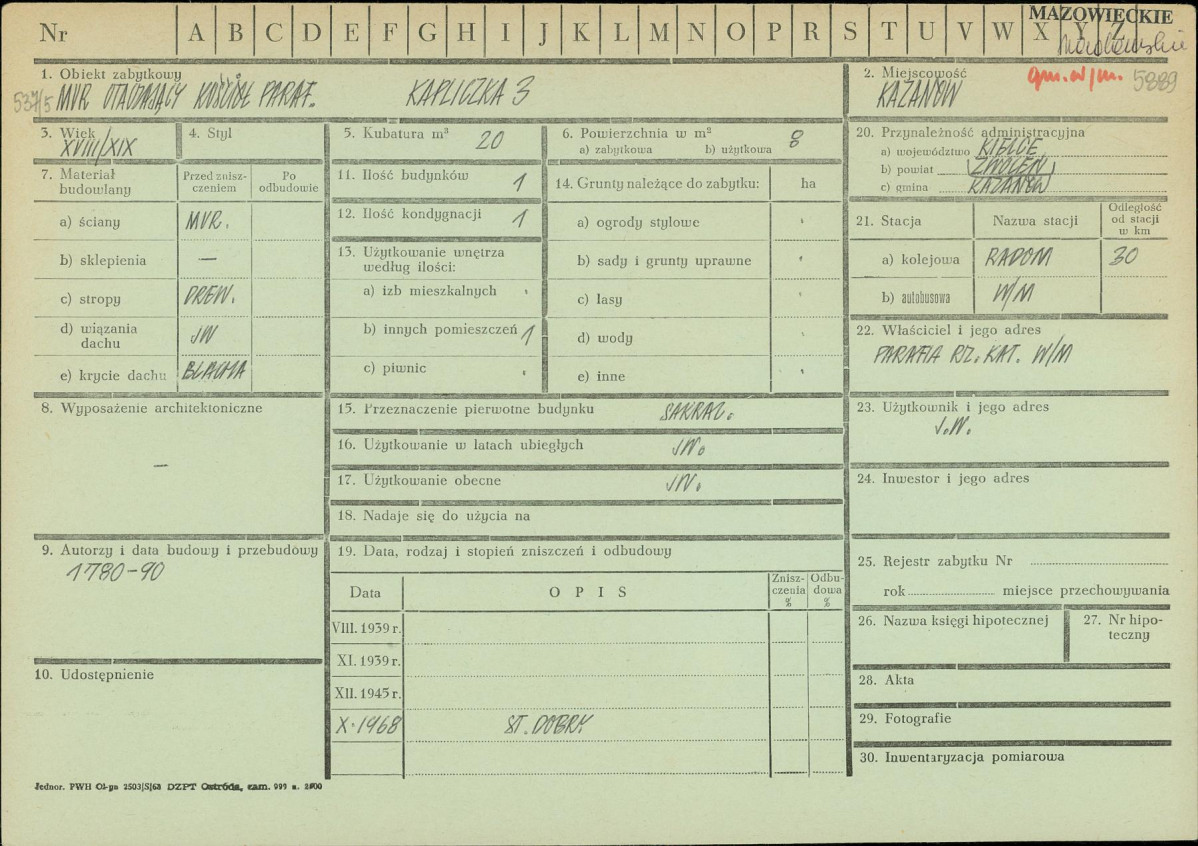 MAZOWIECKIE
Nr A B C D E F G H I J K L M N O P R S T U V W X Y Z
gm. w/m. 5889
1. Obiekt zabytkowy
537/5 MUR OTACZAJĄCY KOŚCIÓŁ PARAF. KAPLICZKA 3
2. Miejscowość
KAZANÓW
3. Wiek
XVIII/XIX
4. Styl
5. Kubatura m³ 20
6. Powierzchnia w m²
a) zabytkowa b) użytkowa 8
7. Materiał budowlany
Przed zniszczeniem
Po odbudowie
a) ściany MUR.
b) sklepienia —
c) stropy DREW.
d) wiązania dachu JW
e) krycie dachu BLACHA
8. Wyposażenie architektoniczne
—
9. Autorzy i data budowy i przebudowy
1780-90
10. Udostępnienie
11. Ilość budynków 1
12. Ilość kondygnacji 1
13. Użytkowanie wnętrza według ilości:
a) izb mieszkalnych
b) innych pomieszczeń 1
c) piwnic
14. Grunty należące do zabytku: ha
a) ogrody stylowe
b) sady i grunty uprawne
c) lasy
d) wody
e) inne
15. Przeznaczenie pierwotne budynku SAKRAL.
16. Użytkowanie w latach ubiegłych JW.
17. Użytkowanie obecne JW.
18. Nadaje się do użycia na
19. Data, rodzaj i stopień zniszczeń i odbudowy
Data OPIS Zniszczenia % Odbudowa %
VIII. 1939 r.
XI. 1939 r.
XII. 1945 r.
X. 1968 ST. DOBRY
20. Przynależność administracyjna
a) województwo KIELCE
b) powiat ZWOLEŃ
c) gmina KAZANÓW
21. Stacja Nazwa stacji Odległość od stacji w km
a) kolejowa RADOM 30
b) autobusowa W/M
22. Właściciel i jego adres
PARAFIA RZ. KAT. W/M
23. Użytkownik i jego adres
J.W.
24. Inwestor i jego adres
25. Rejestr zabytku Nr
rok miejsce przechowywania
26. Nazwa księgi hipotecznej
27. Nr hipoteczny
28. Akta
29. Fotografie
30. Inwentaryzacja pomiarowa
Jednor. PWH Ol-yn 2503/S/63 DZPT Ostróda, zam. 999 n. 2500